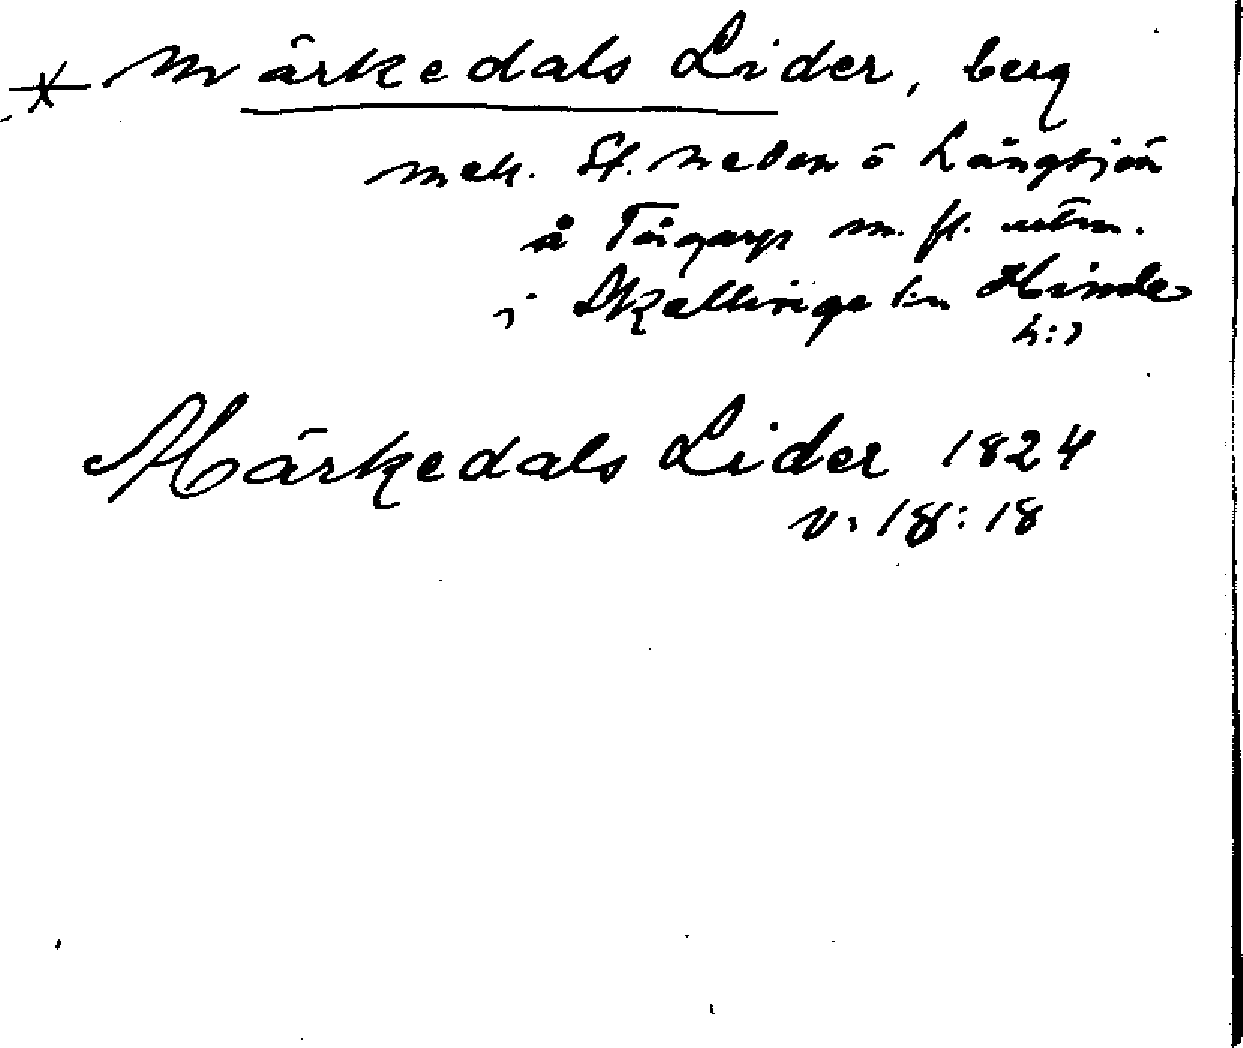 * Märkedals Lider, berg
mell. St. Neden ö Långsjön
å Tågarp m. fl. utm.
i Skällinge sn Himle
h:d
Märkedals Lider 1824
v. 18:18